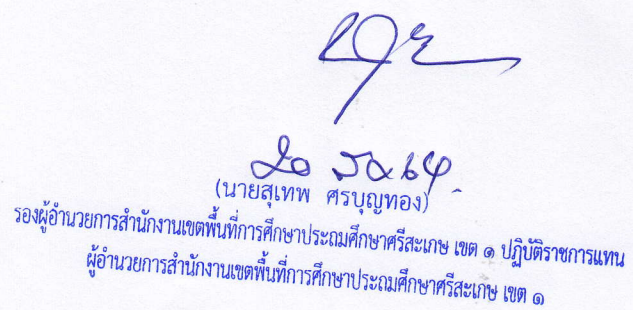 ๒๐ ธค ๖๔
(นายสุเทพ ศรบุญทอง)
รองผู้อำนวยการสำนักงานเขตพื้นที่การศึกษาประถมศึกษาศรีสะเกษ เขต ๑ ปฏิบัติราชการแทน
ผู้อำนวยการสำนักงานเขตพื้นที่การศึกษาประถมศึกษาศรีสะเกษ เขต ๑